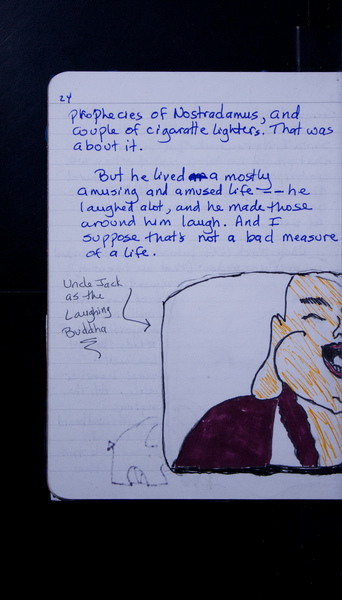 24
prophecies of Nostradamus, and
couple of cigaratte lighters. That was
about it.
But he lived a mostly
amusing and amused life -- he
laughed alot, and he made those
around him laugh. And I
suppose that's not a bad measure
of a life.
Uncle Jack
as the
Laughing
Buddha